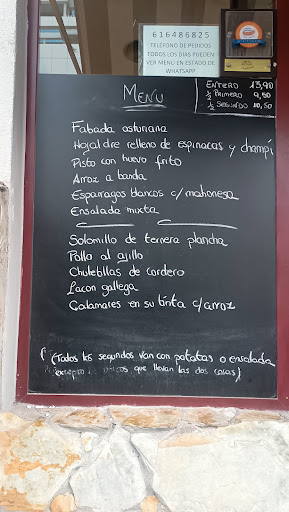 616486825
TELEFONO DE PEDIDOS
TODOS LOS DIAS PUEDEN
VER MENU EN ESTADO DE
WHATSAPP
MENU
ENTERO 13,90
½ PRIMERO 9,50
½ SEGUNDO 10,50
Fabada asturiana
Hojaldre relleno de espinacas y champi
Pisto con huevo frito
Arroz a banda
Esparragos blancos c/mahonesa
Ensalada mixta
Solomillo de ternera plancha
Pollo al ajillo
Chuletillas de cordero
Lacon gallega
Calamares en su tinta c/arroz
(Todos los segundos van con patatas o ensalada
que llevan las dos cosas)